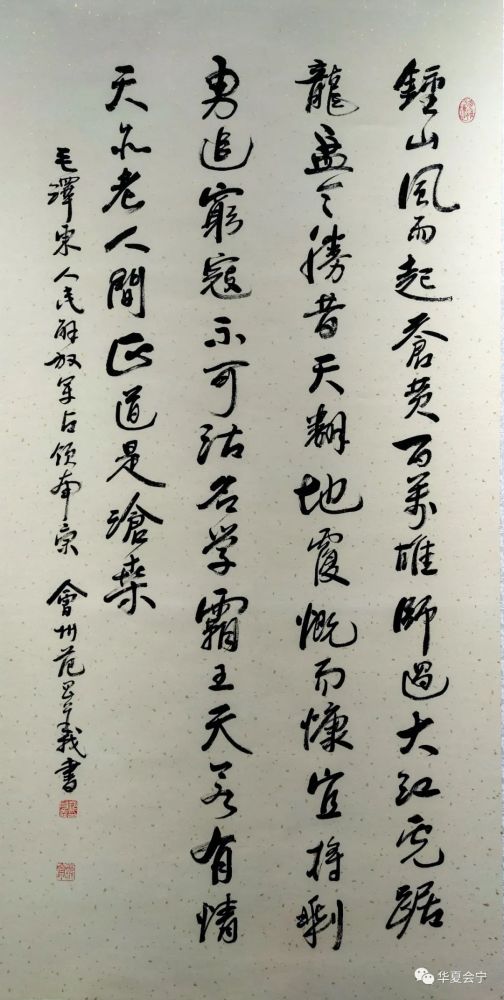 鍾山風雨起蒼黄百萬雄師過大江虎踞
龍盘今勝昔天翻地覆慨而慷宜将剩
勇追窮寇不可沽名学霸王天若有情
天亦老人間正道是滄桒
毛澤東人民解放军占领南京 會州范義書
华夏会宁